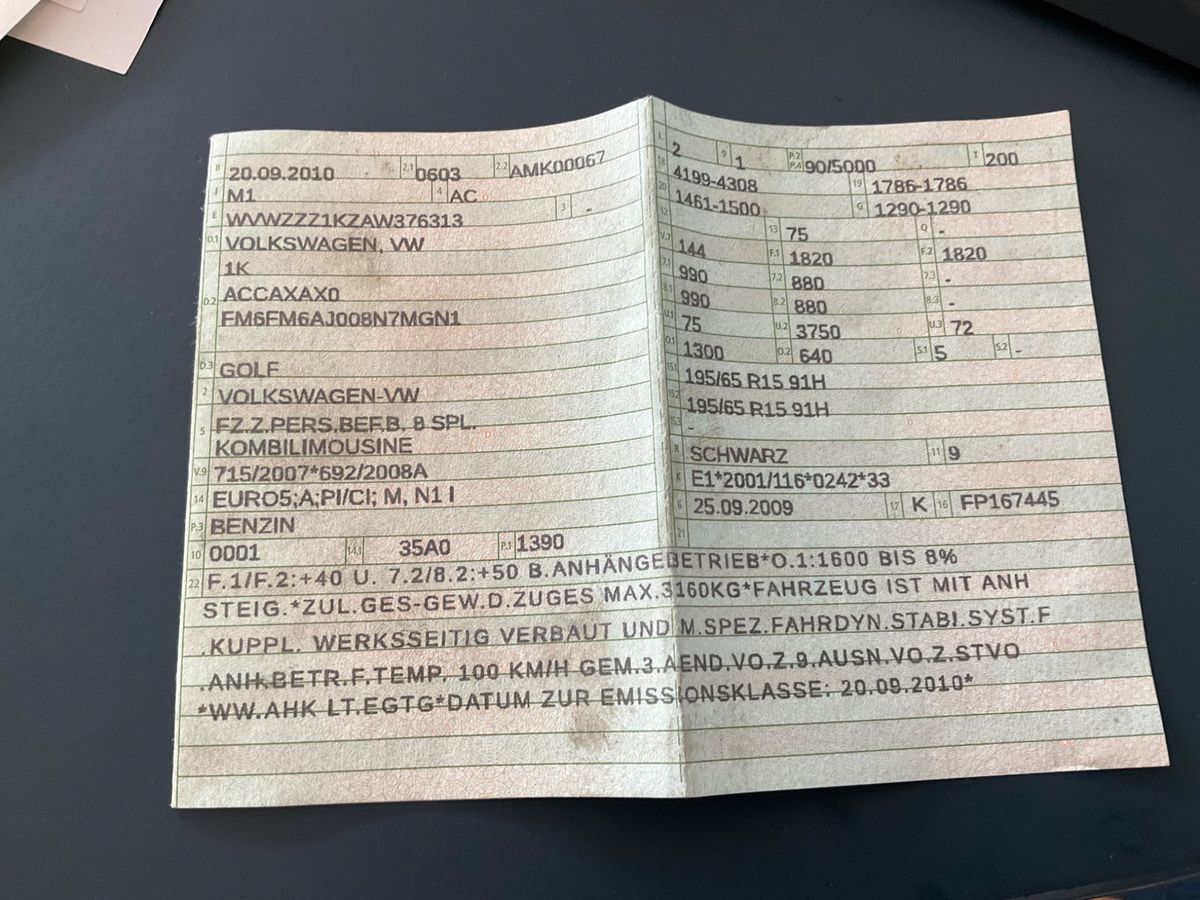 B 20.09.2010 2.1 0603 2.2 AMK00067
J M1 4 AC
E WVWZZZ1KZAW376313 3 -
D.1 VOLKSWAGEN, VW
1K
D.2 ACCAXAX0
FM6FM6AJ008N7MGN1
D.3 GOLF
2 VOLKSWAGEN-VW
5 FZ.Z.PERS.BEF.B. 8 SPL.
KOMBILIMOUSINE
V.9 715/2007*692/2008A
14 EURO5;A;PI/CI; M, N1 I
P.3 BENZIN
10 0001 14.1 35A0 P.1 1390
L 2 9 1 P.2 P.4 90/5000 T 200
18 4199-4308 19 1786-1786
20 1461-1500 G 1290-1290
12 13 75 Q -
V.7 144 F.1 1820 F.2 1820
7.1 990 7.2 880 7.3 -
8.1 990 8.2 880 8.3 -
U.1 75 U.2 3750 U.3 72
O.1 1300 O.2 640 S.1 5 S.2 -
15.1 195/65 R15 91H
15.2 195/65 R15 91H
15.3 -
R SCHWARZ 11 9
K E1*2001/116*0242*33
6 25.09.2009 17 K 16 FP167445
21
22 F.1/F.2:+40 U. 7.2/8.2:+50 B.ANHÄNGEBETRIEB*O.1:1600 BIS 8%
STEIG.*ZUL.GES-GEW.D.ZUGES MAX.3160KG*FAHRZEUG IST MIT ANH
.KUPPL. WERKSSEITIG VERBAUT UND M.SPEZ.FAHRDYN.STABI.SYST.F
.ANH.BETR.F.TEMP. 100 KM/H GEM.3.AEND.VO.Z.9.AUSN.VO.Z.STVO
*WW.AHK LT.EGTG*DATUM ZUR EMISSIONSKLASSE: 20.09.2010*